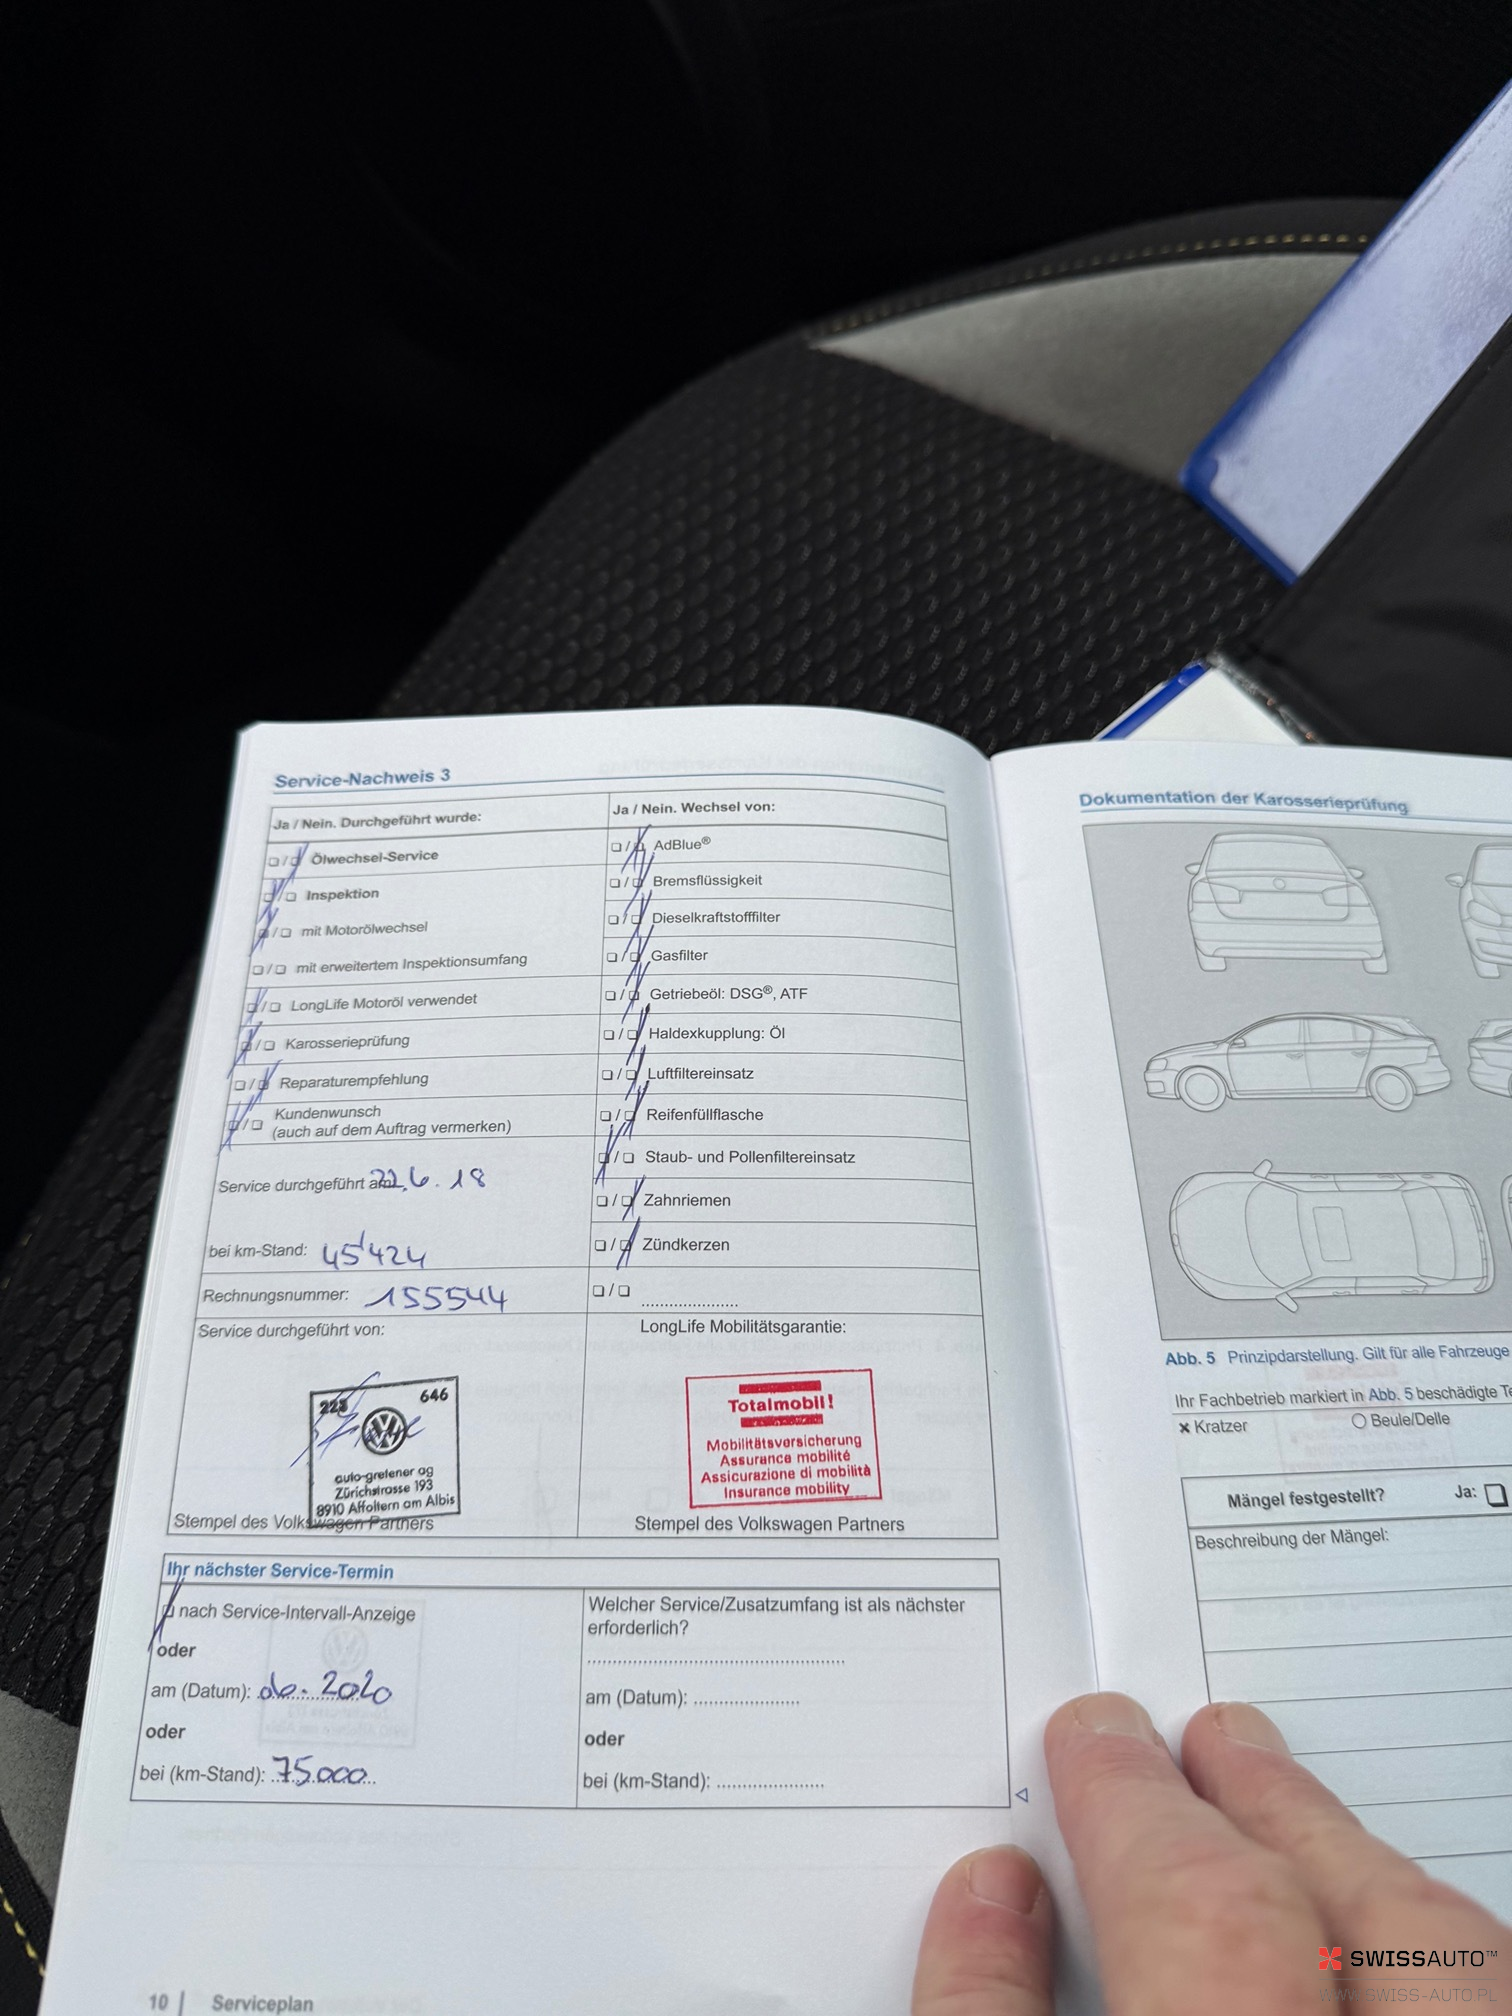 Service-Nachweis 3
Ja / Nein. Durchgeführt wurde:
❑/❑ Ölwechsel-Service
❑/❑ Inspektion
❑/❑ mit Motorölwechsel
❑/❑ mit erweitertem Inspektionsumfang
❑/❑ LongLife Motoröl verwendet
❑/❑ Karosserieprüfung
❑/❑ Reparaturempfehlung
❑/❑ Kundenwunsch
(auch auf dem Auftrag vermerken)
Service durchgeführt am 22.6.18
bei km-Stand: 45'424
Rechnungsnummer: 155544
Service durchgeführt von:
223 646
auto-gretener ag
Zürichstrasse 193
8910 Affoltern am Albis
Stempel des Volkswagen Partners
Ja / Nein. Wechsel von:
❑/❑ AdBlue®
❑/❑ Bremsflüssigkeit
❑/❑ Dieselkraftstofffilter
❑/❑ Gasfilter
❑/❑ Getriebeöl: DSG®, ATF
❑/❑ Haldexkupplung: Öl
❑/❑ Luftfiltereinsatz
❑/❑ Reifenfüllflasche
❑/❑ Staub- und Pollenfiltereinsatz
❑/❑ Zahnriemen
❑/❑ Zündkerzen
❑/❑ ......................
LongLife Mobilitätsgarantie:
Totalmobil!
Mobilitätsversicherung
Assurance mobilité
Assicurazione di mobilità
Insurance mobility
Stempel des Volkswagen Partners
Ihr nächster Service-Termin
❑ nach Service-Intervall-Anzeige
oder
am (Datum): 06.2020
oder
bei (km-Stand): 75.000
Welcher Service/Zusatzumfang ist als nächster
erforderlich?
am (Datum): ......................
oder
bei (km-Stand): ......................
10 | Serviceplan
Dokumentation der Karosserieprüfung
Abb. 5 Prinzipdarstellung. Gilt für alle Fahrzeuge
Ihr Fachbetrieb markiert in Abb. 5 beschädigte
✖ Kratzer ○ Beule/Delle
Mängel festgestellt? Ja: ❑
Beschreibung der Mängel:
SWISSAUTO™
WWW.SWISS-AUTO.PL